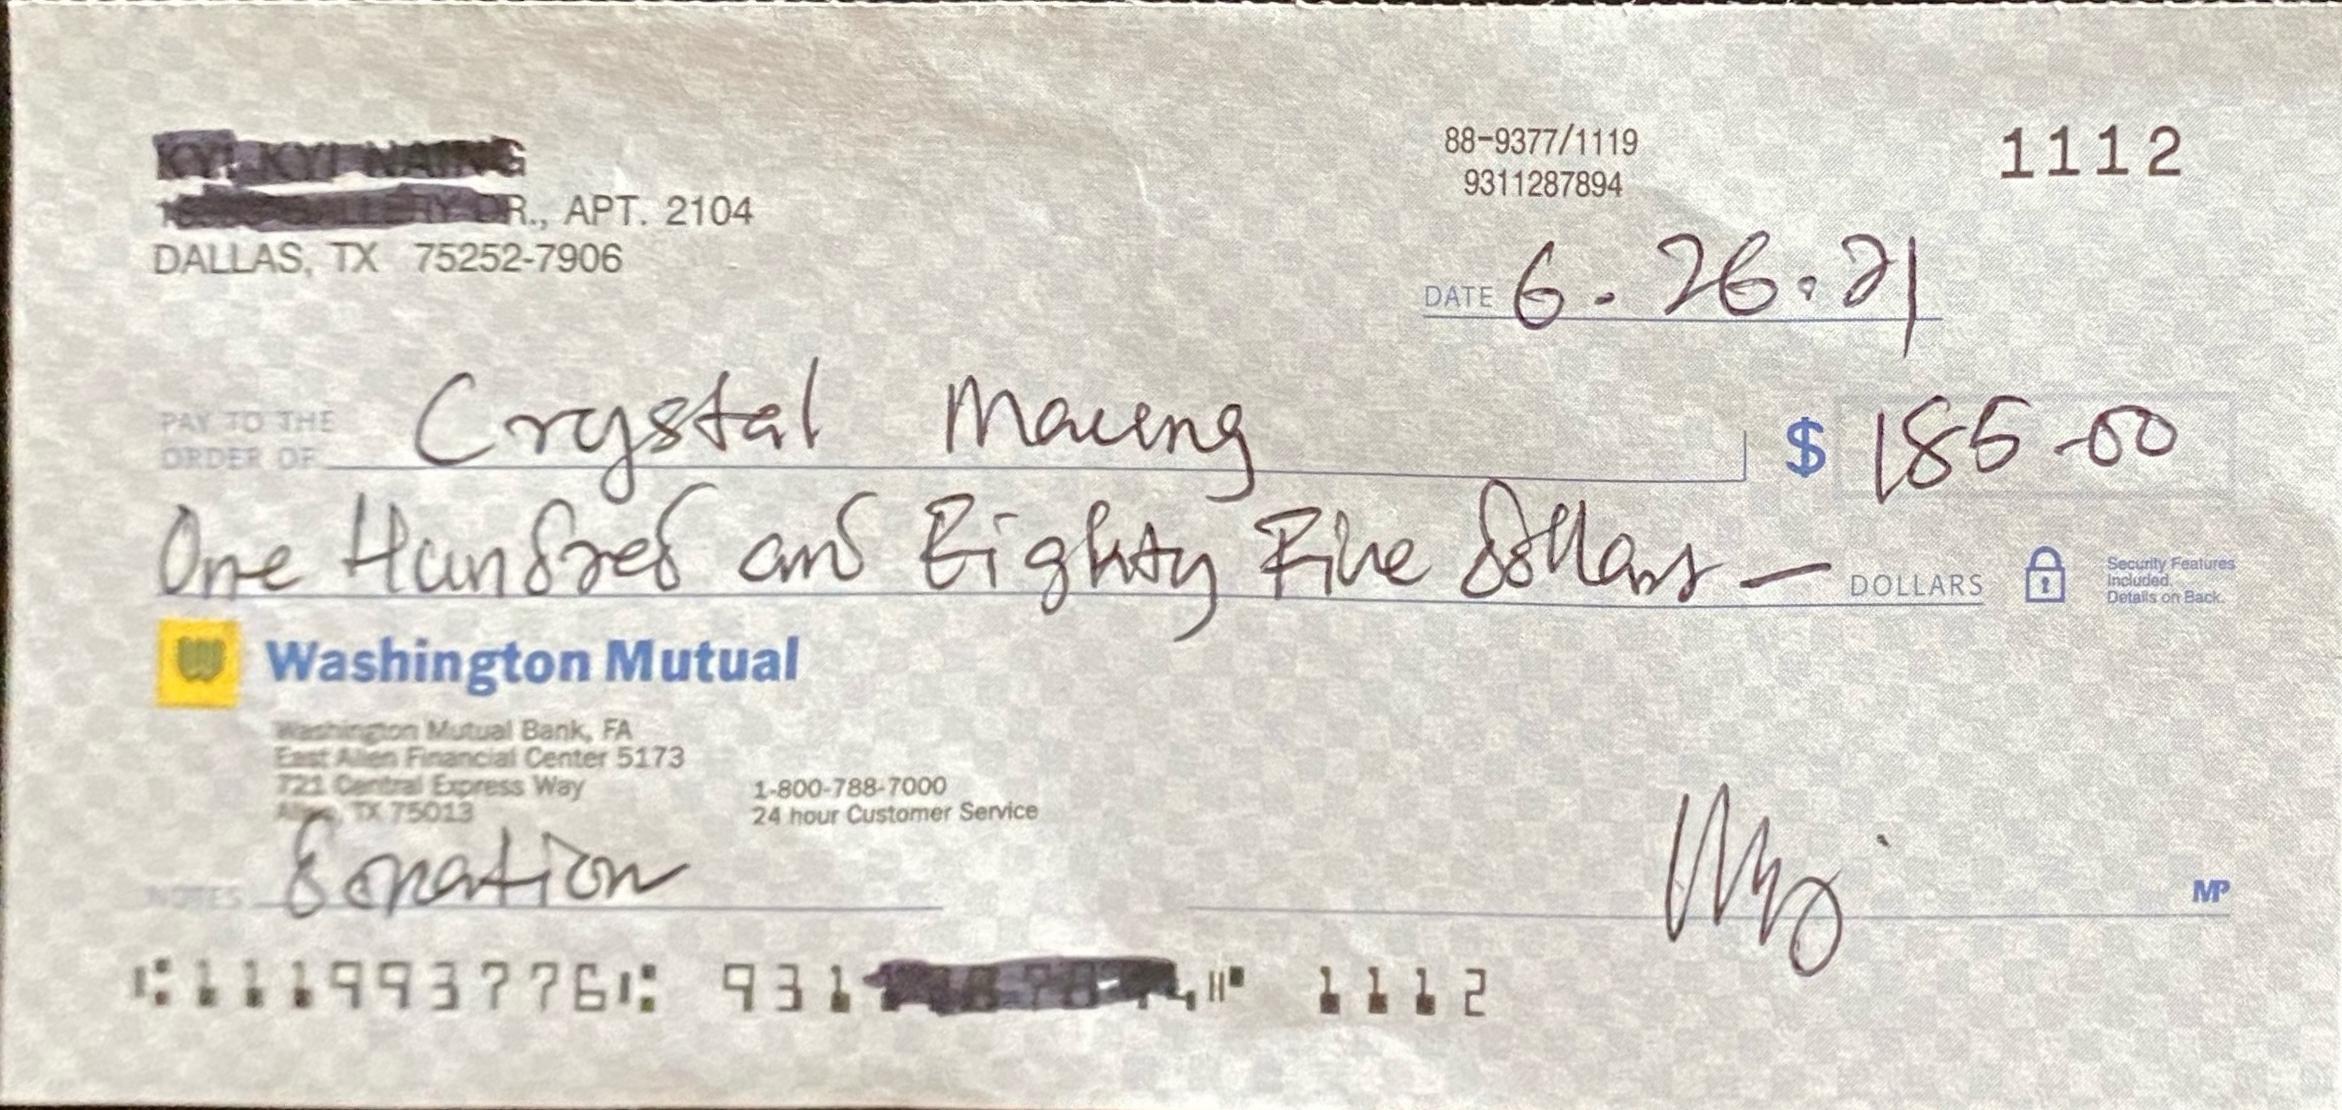 APT. 2104
DALLAS, TX 75252-7906
88-9377/1119
9311287894
1112
DATE 6.26.21
PAY TO THE
ORDER OF Crystal Maung $ 185-00
One Hundred and Eighty Five Dollars — DOLLARS
Security Features
Included.
Details on Back.
Washington Mutual
Washington Mutual Bank, FA
East Allen Financial Center 5173
721 Central Express Way
Allen, TX 75013
1-800-788-7000
24 hour Customer Service
NOTES Donation
MP
⑆111993776⑆ 1112